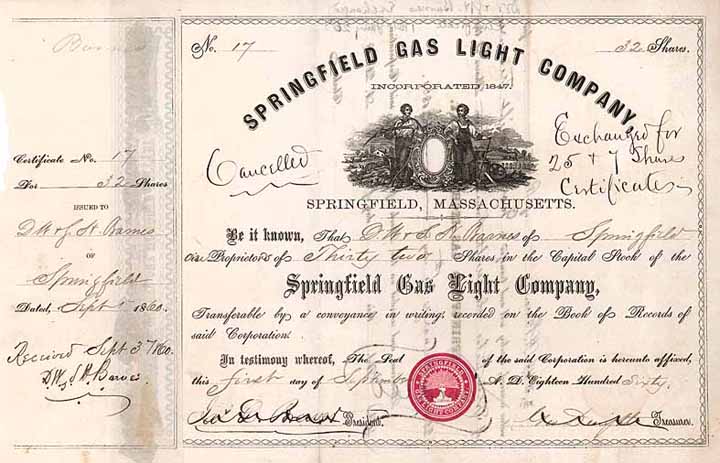 Barnes
Certificate No. 17
For 32 Shares
ISSUED TO
D W & J. N. Barnes
OF
Springfield
Dated, Sept 1 1860.
Received Sept 3d/1860.
No. 17
32 Shares.
SPRINGFIELD GAS LIGHT COMPANY,
INCORPORATED 1847.
Cancelled
Exchanged for
25 & 7 Shares
Certificates
SPRINGFIELD, MASSACHUSETTS.
Be it known, That D W & J. N. Barnes of Springfield
are Proprietors of Thirty two Shares in the Capital Stock of the
Springfield Gas Light Company,
Transferable by a conveyance in writing, recorded on the Book of Records of
said Corporation.
In testimony whereof, The Seal of the said Corporation is hereunto affixed,
this first day of September A. D. Eighteen Hundred Sixty.
SPRINGFIELD
GAS LIGHT COMPANY
President.
Treasurer.